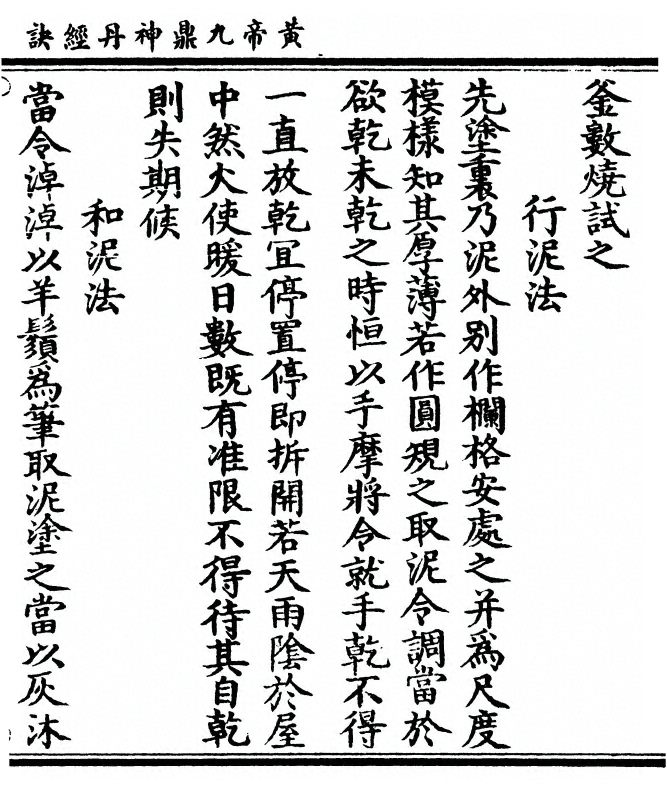 黃帝九鼎神丹經訣
釜數燒試之
行泥法
先塗裏乃泥外别作欄格安處之并為尺度
模樣知其厚薄若作圓規之取泥令調當於
欲乾未乾之時恒以手摩將令就手乾不得
一直放乾冝停置停即拆開若天雨陰於屋
中然火使暖日數既有准限不得待其自乾
則失期候
和泥法
當令淖淖以羊鬚為筆取泥塗之當以灰沐